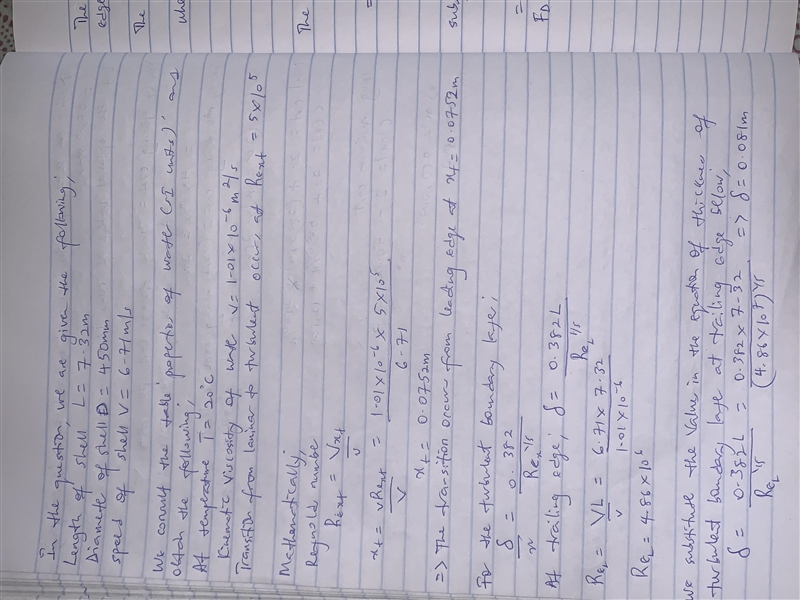 The
edge
The
whe
The
=
sub
=
FD
In the question, we are given the following;
Length of shell L = 7.32m
Diameter of shell D = 450mm
speed of shell V = 6.71m/s
We consult the table 'properties of water (SI units)' and
obtain the following;
At temperature T = 20°C
Kinematic viscosity of water ν = 1.01 × 10⁻⁶ m²/s
Transition from laminar to turbulent occurs at Rext = 5×10⁵
Mathematically,
Reynold number
Rext = Vxt/ν
xt = νRext/V = 1.01×10⁻⁶ × 5×10⁵/6.71
xt = 0.0752m
=> The transition occurs from leading edge at xt = 0.0752m
For the turbulent boundary layer;
δ/x = 0.382/Rex^1/5
At trailing edge; δ = 0.382L/ReL^1/5
ReL = VL/ν = 6.71 × 7.32/1.01×10⁻⁶
ReL = 4.86×10⁶
We substitute the values in the equation of thickness of
turbulent boundary layer at trailing edge below,
δ = 0.382L/ReL^1/5 = 0.382 × 7.32/(4.86×10⁷)^1/5 => δ = 0.081m